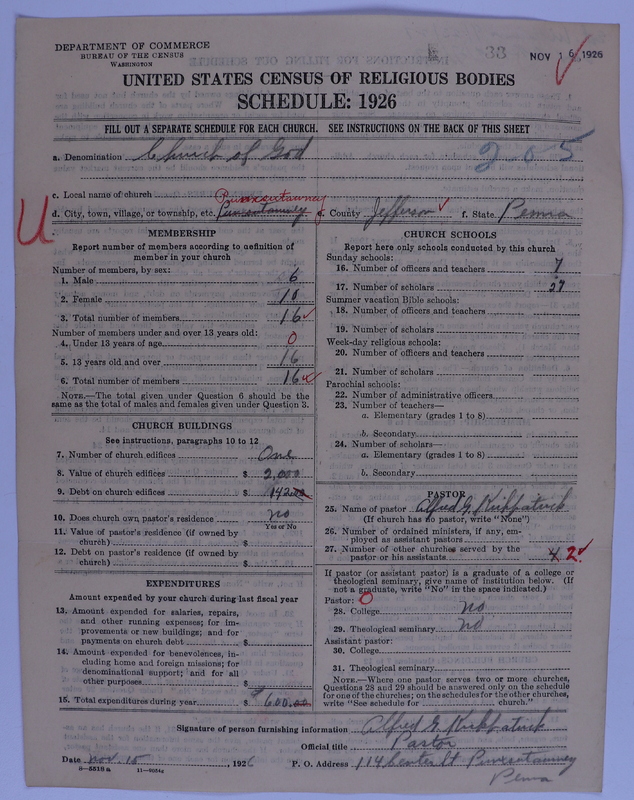 DEPARTMENT OF COMMERCE
BUREAU OF THE CENSUS
WASHINGTON
33
NOV 16 1926
UNITED STATES CENSUS OF RELIGIOUS BODIES
SCHEDULE: 1926
FILL OUT A SEPARATE SCHEDULE FOR EACH CHURCH. SEE INSTRUCTIONS ON THE BACK OF THIS SHEET
a. Denomination Church of God
205
c. Local name of church
Punxsutawney
d. City, town, village, or township, etc. e. County Jefferson f. State Penna
U
MEMBERSHIP
Report number of members according to definition of
member in your church
Number of members, by sex:
1. Male 6
2. Female 10
3. Total number of members 16
Number of members under and over 13 years old:
4. Under 13 years of age 0
5. 13 years old and over 16
6. Total number of members 16
NOTE.—The total given under Question 6 should be the
same as the total of males and females given under Question 3.
CHURCH BUILDINGS
See instructions, paragraphs 10 to 12
7. Number of church edifices One
8. Value of church edifices $ 2,000
9. Debt on church edifices $ 142.00
10. Does church own pastor's residence no
Yes or No
11. Value of pastor's residence (if owned by
church) $
12. Debt on pastor's residence (if owned by
church) $
EXPENDITURES
Amount expended by your church during last fiscal year
13. Amount expended for salaries, repairs,
and other running expenses; for im-
provements or new buildings; and for
payments on church debt $
14. Amount expended for benevolences, in-
cluding home and foreign missions; for
denominational support; and for all
other purposes $
15. Total expenditures during year $ 600.00
CHURCH SCHOOLS
Report here only schools conducted by this church
Sunday schools:
16. Number of officers and teachers 7
17. Number of scholars 27
Summer vacation Bible schools:
18. Number of officers and teachers
19. Number of scholars
Week-day religious schools:
20. Number of officers and teachers
21. Number of scholars
Parochial schools:
22. Number of administrative officers
23. Number of teachers—
a. Elementary (grades 1 to 8)
b. Secondary
24. Number of scholars—
a. Elementary (grades 1 to 8)
b. Secondary
PASTOR
25. Name of pastor Alfred G. Kirkpatrick
(If church has no pastor, write "None")
26. Number of ordained ministers, if any, em-
ployed as assistant pastors
27. Number of other churches served by the
pastor or his assistants 2
If pastor (or assistant pastor) is a graduate of a college or
theological seminary, give name of institution below. (If
not a graduate, write "No" in the space indicated.)
Pastor: 0
28. College no
29. Theological seminary no
Assistant pastor:
30. College
31. Theological seminary
NOTE.—Where one pastor serves two or more churches,
Questions 28 and 29 should be answered only on the schedule
for one of the churches; on the schedules for the other churches,
write "See schedule for church."
Signature of person furnishing information Alfred G. Kirkpatrick
Official title Pastor
Date Nov. 15, 1926 P. O. Address 114 Center St Punxsutawney
Penna
8—5518 a 11—8054a